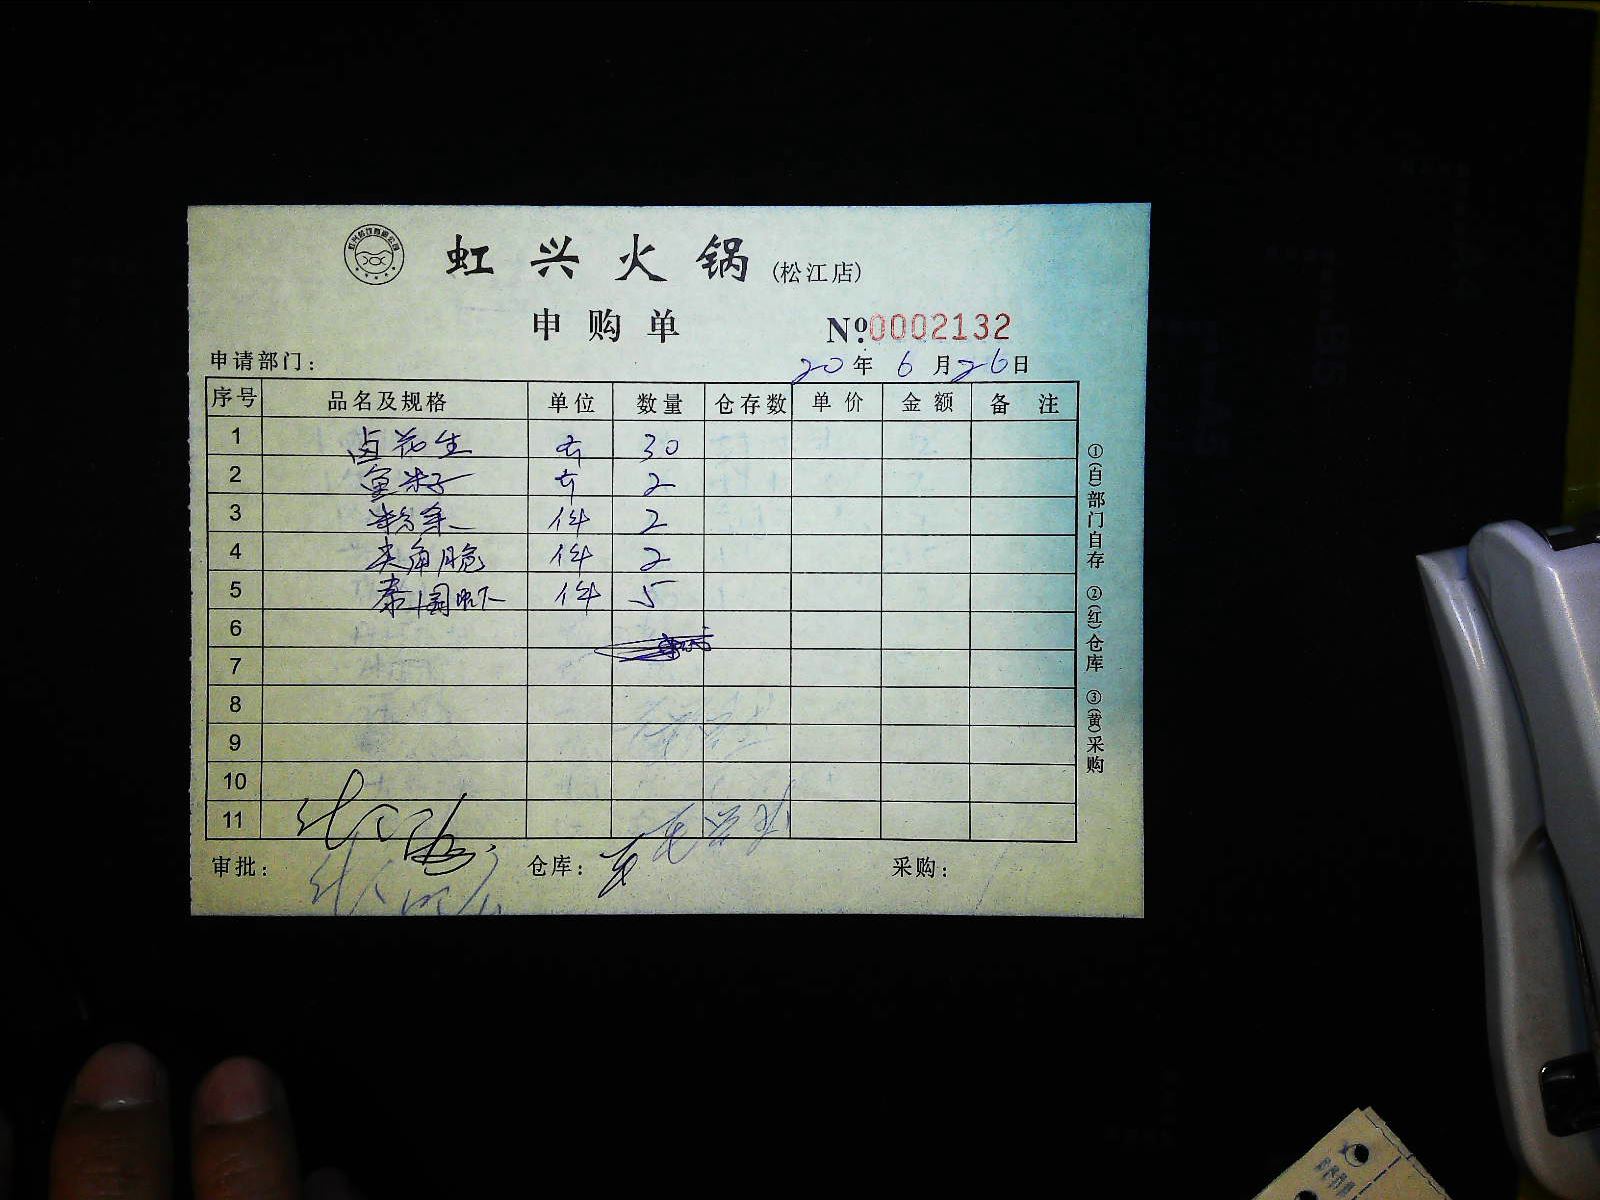 虹兴火锅(松江店)
申购单
Nº.0002132
申请部门:
20年6月26日
序号 品名及规格 单位 数量 仓存数 单价 金额 备注
1 卤花生 斤 30
2 鱼籽 斤 2
3 粉条 件 2
4 尖角脆 件 2
5 泰国虾 件 5
6
7
8
9
10
11
审批: 仓库: 采购:
①(白)部门自存 ②(红)仓库 ③(黄)采购